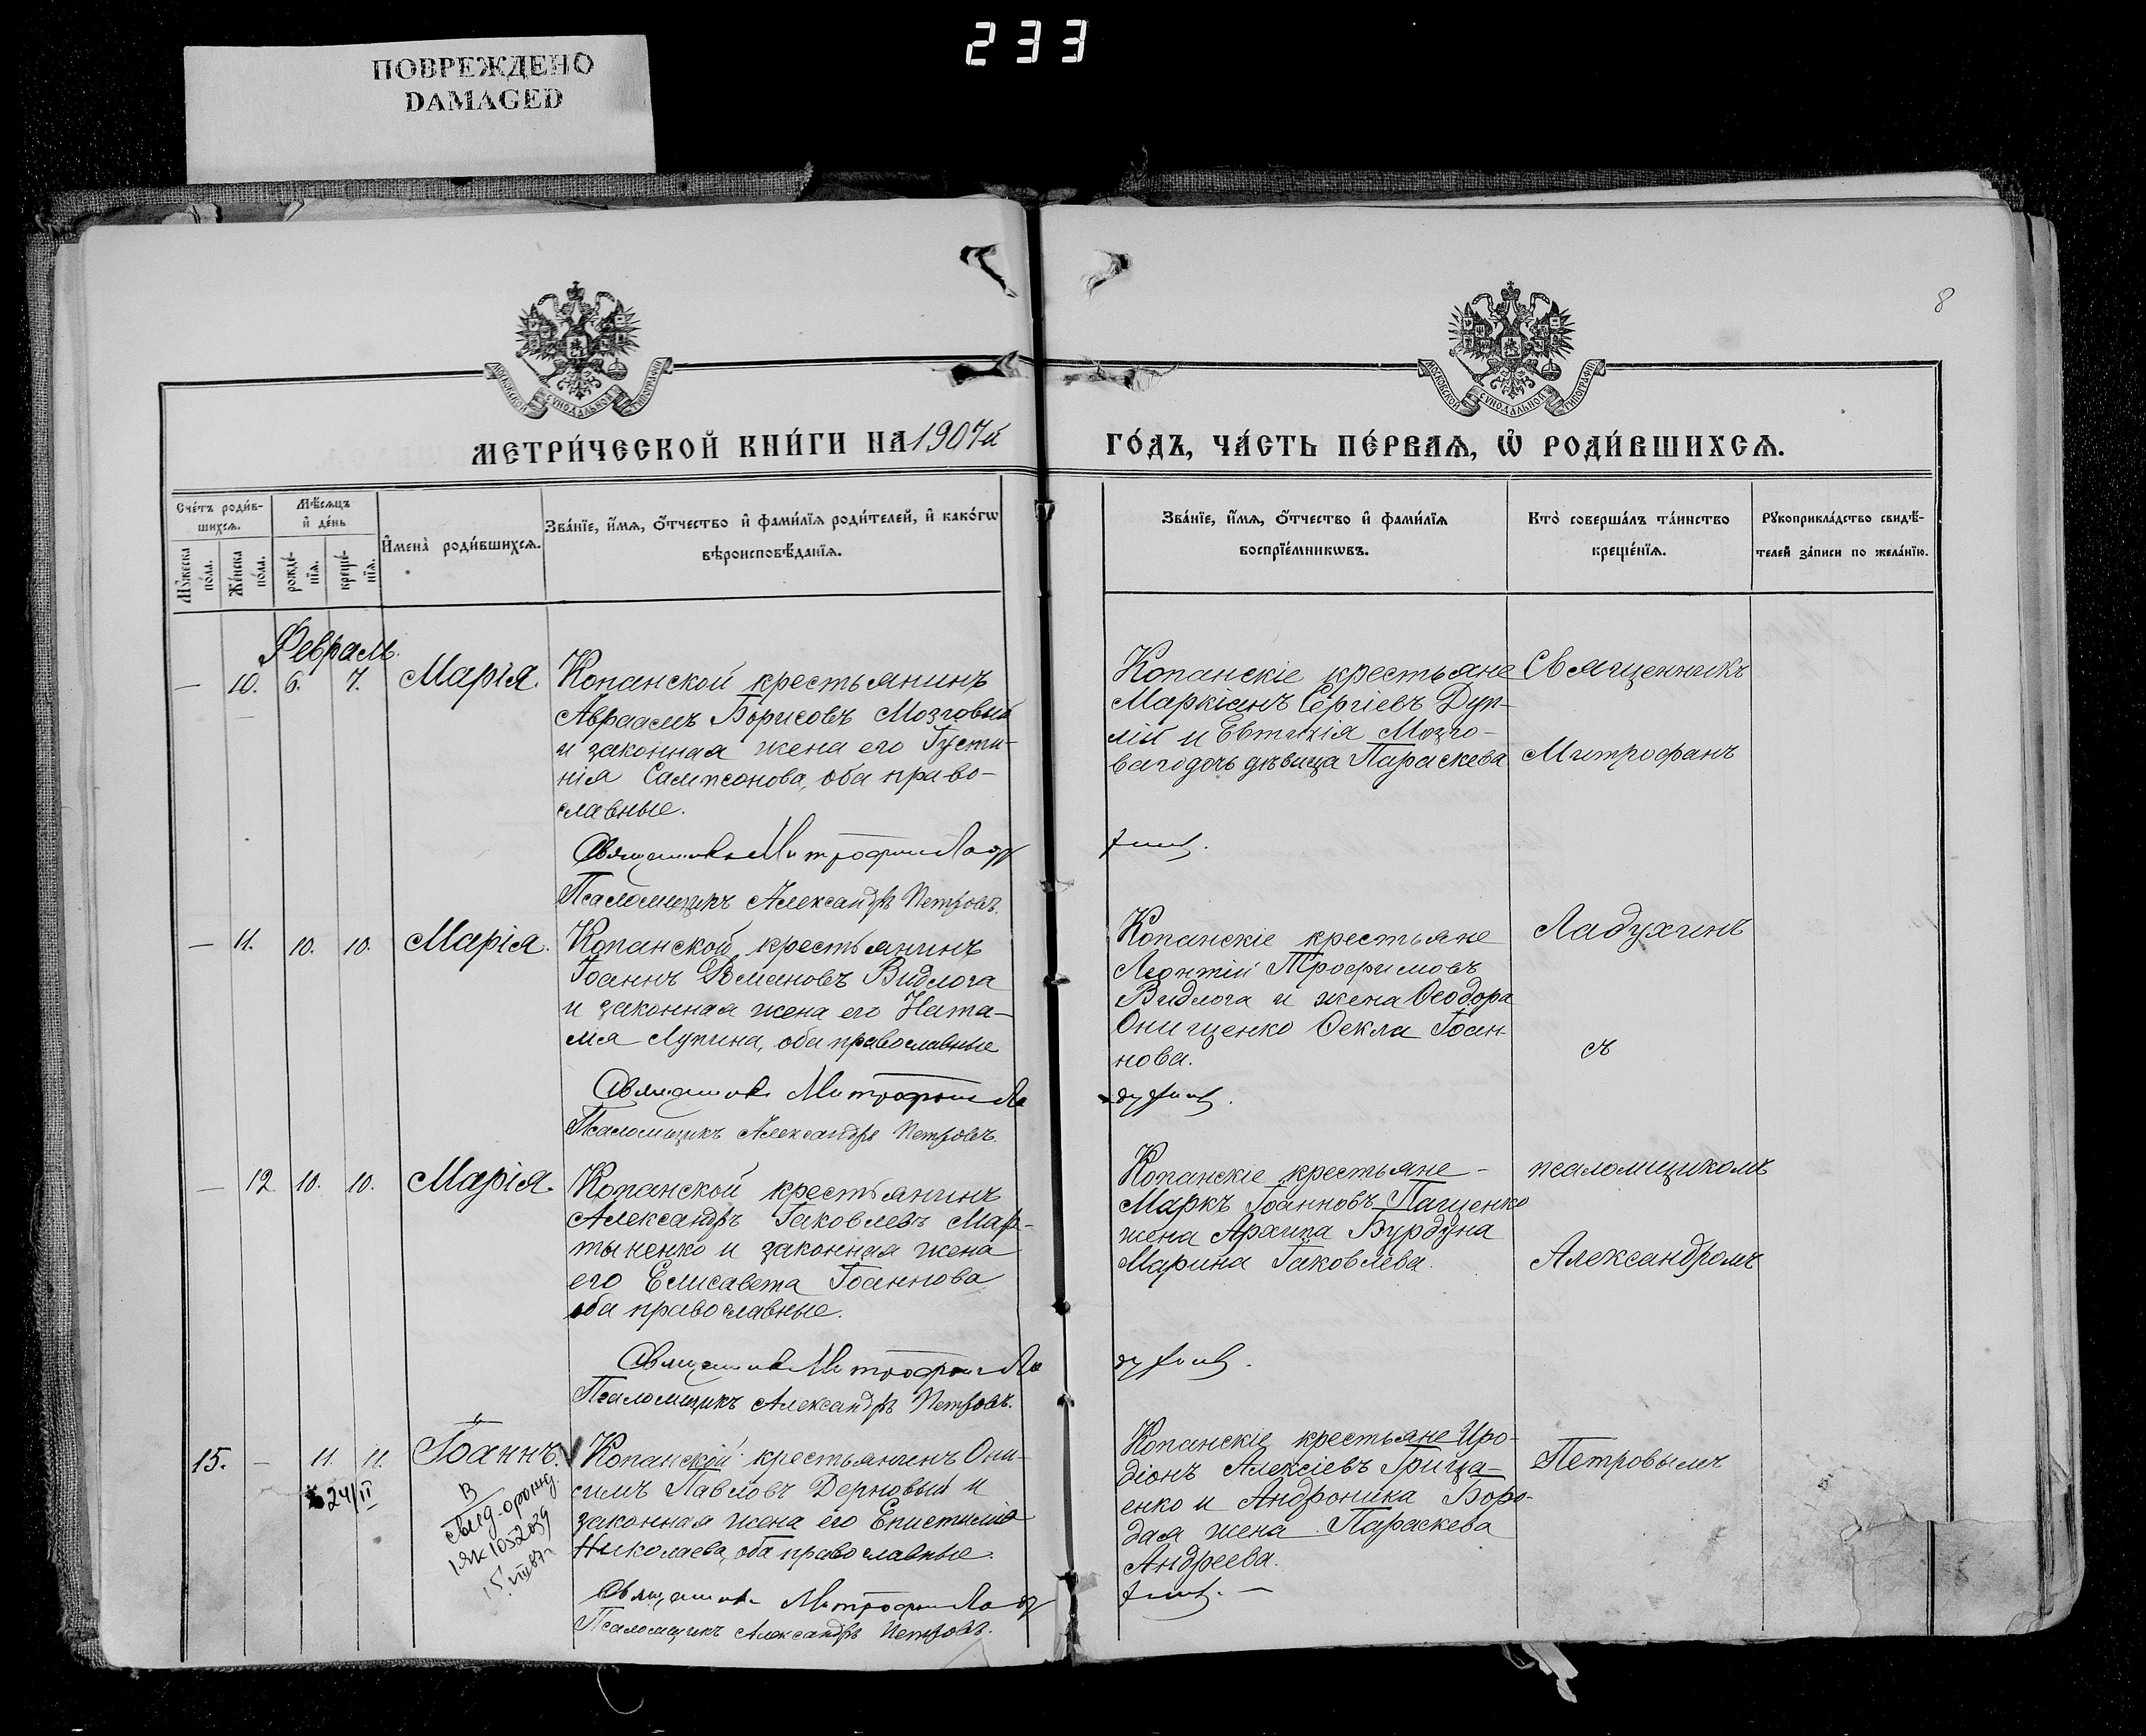 233
ПОВРЕЖДЕНО
DAMAGED
8
МОСКОВСКОЙ СѴНОДАЛЬНОЙ ТИПОГРАФІИ
МОСКОВСКОЙ СѴНОДАЛЬНОЙ ТИПОГРАФІИ
МЕТРИ́ЧЕСКОЙ КНИ́ГИ НА 1907й
ГО́ДЪ, ЧА́СТЬ ПЕ́РВАѦ, Ѡ҆ РОДИ́ВШИХСѦ.
Сче́тъ роди́в-
шихсѧ.
Мѣ́сѧцъ
и҆ де́нь
Мꙋ́жеска
по́ла.
Же́нска
по́ла.
рожде́-
нїѧ.
креще́-
нїѧ.
И҆мена̀ роди́вшихсѧ.
Зва́нїе, и҆́мѧ, ѻ҆́тчество и҆ фами́лїѧ роди́телей, и҆ како́гѡ
вѣроисповѣ́данїѧ.
Зва́нїе, и҆́мѧ, ѻ҆́тчество и҆ фами́лїѧ
воспрїе́мникѡвъ.
Кто̀ соверша́лъ та́инство
креще́нїѧ.
Рꙋкоприкла́дство свидѣ́-
телей за́писи по жела́нїю.
Февраль.
— 10. 6. 7. Марія.
Копанской крестьянинъ
Авраамъ Борисовъ Мозговый
и законная жена его Густи-
нія Сампсонова, оба право-
славные.
Священникъ Митрофанъ Ладу
Псаломщикъ Александръ Петровъ.
Копанскіе крестьяне
Маркіанъ Сергіевъ Дуп-
лій и Евтихія Мозго-
ваго дочь дѣвица Параскева
хинъ.
Священникъ
Митрофанъ
— 11. 10. 10. Марія.
Копанской крестьянинъ
Іоаннъ Романовъ Видлога
и законная жена его Ната-
лія Лупина, оба православные
Священникъ Митрофанъ Ла
Псаломщикъ Александръ Петровъ.
Копанскіе крестьяне
Леонтій Трофимовъ
Видлога и жена Ѳеодора
Онищенко Ѳекла Іоан-
нова.
духинъ.
Ладухинъ
съ
— 12 10. 10. Марія.
Копанской крестьянинъ
Александръ Іаковлевъ Мар-
тыненко и законная жена
его Елисавета Іоаннова
оба православные.
Священникъ Митрофанъ Ла
Псаломщикъ Александръ Петровъ.
Копанскіе крестьяне -
Маркъ Іоанновъ Пащенко
жена Архипа Бурдуна
Марина Іаковлева.
духинъ.
псаломщикомъ
Александромъ
15. — 11. 11. Іоаннъ.
24/II
В
1052039
Копанскій крестьянинъ Они-
симъ Павловъ Дерновый и
законная жена его Епистимія
Николаева, оба православные.
Священникъ Митрофанъ Ладу
Псаломщикъ Александръ Петровъ.
Копанскіе крестьяне Иро-
діонъ Алексіевъ Грица-
енко и Андроника Боро-
дая жена Параскева
Андреева.
хинъ. —
Петровымъ